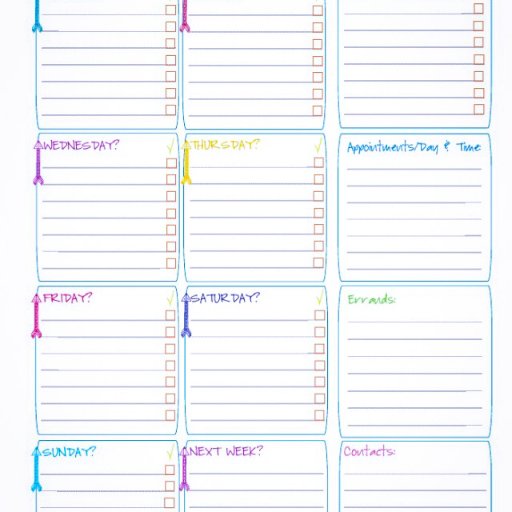 WEDNESDAY?
THURSDAY?
Appointments/Day & Time:
FRIDAY?
SATURDAY?
Errands:
SUNDAY?
NEXT WEEK?
Contacts: